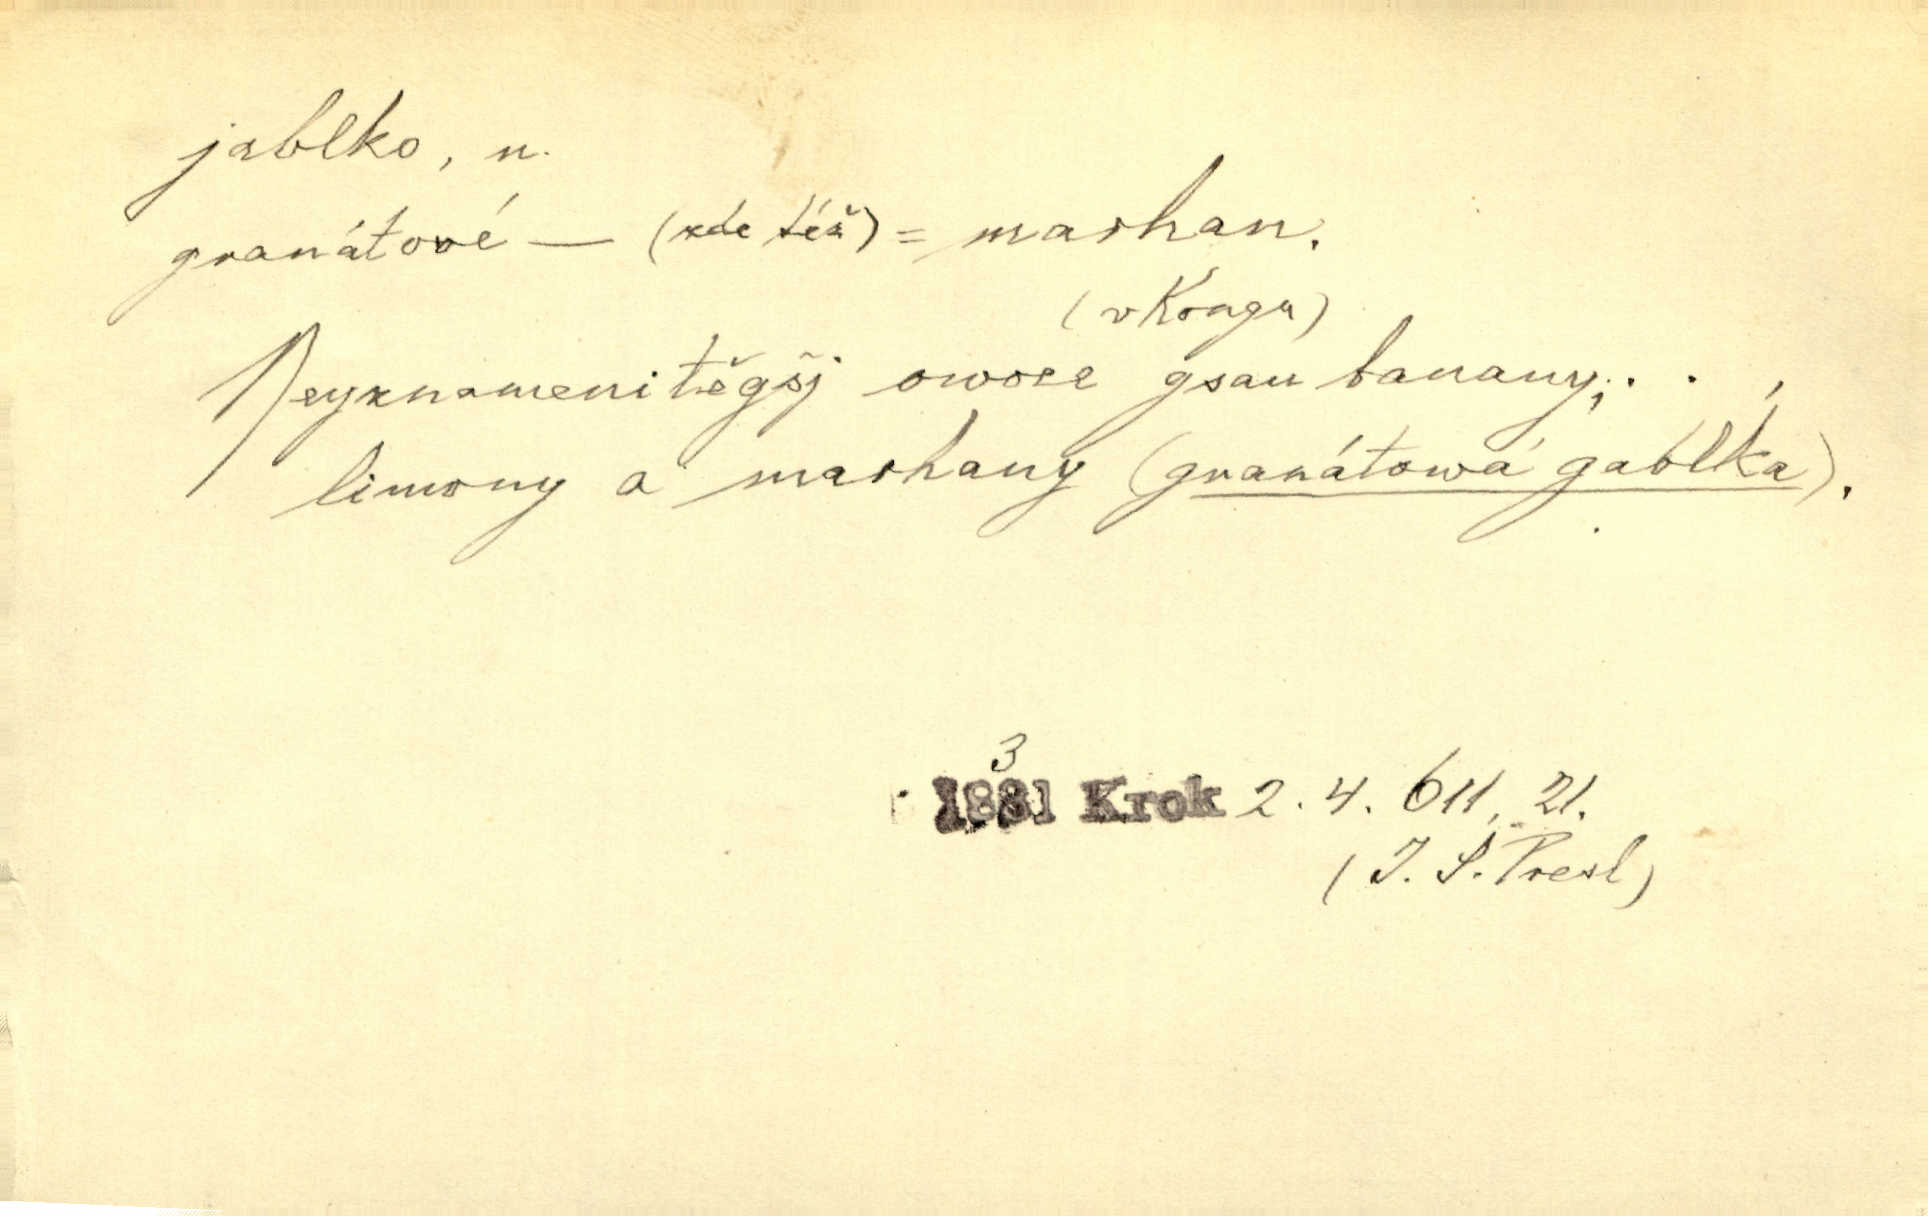 jablko, n.
granátové — (zde též) = marhan.
(v Kongu)
Neyznamenitěgšj owoce gsau banany, . . ,
limony a marhany (granátowá gablka).
3
1821 Krok 2. 4. 611, 21.
(J. S. Presl)